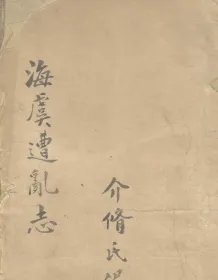 海虞遭亂志
介脩氏